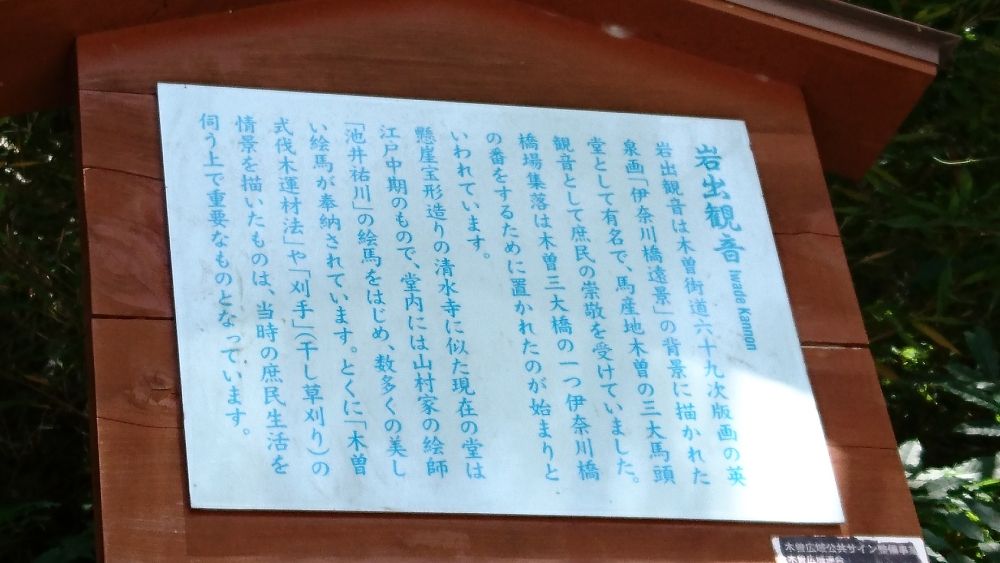 岩出観音 Iwade Kannon
岩出観音は木曽街道六十九次版画の英
泉画「伊奈川橋遠景」の背景に描かれた
堂として有名で、馬産地木曽の三大馬頭
観音として庶民の崇敬を受けていました。
橋場集落は木曽三大橋の一つ伊奈川橋
の番をするために置かれたのが始まりと
いわれています。
懸崖宝形造りの清水寺に似た現在の堂は
江戸中期のもので、堂内には山村家の絵師
「池井祐川」の絵馬をはじめ、数多くの美し
い絵馬が奉納されています。とくに「木曽
式伐木運材法」や「刈手」（干し草刈り）の
情景を描いたものは、当時の庶民生活を
伺う上で重要なものとなっています。
木曽広域公共サイン整備事業
木曽広域連合